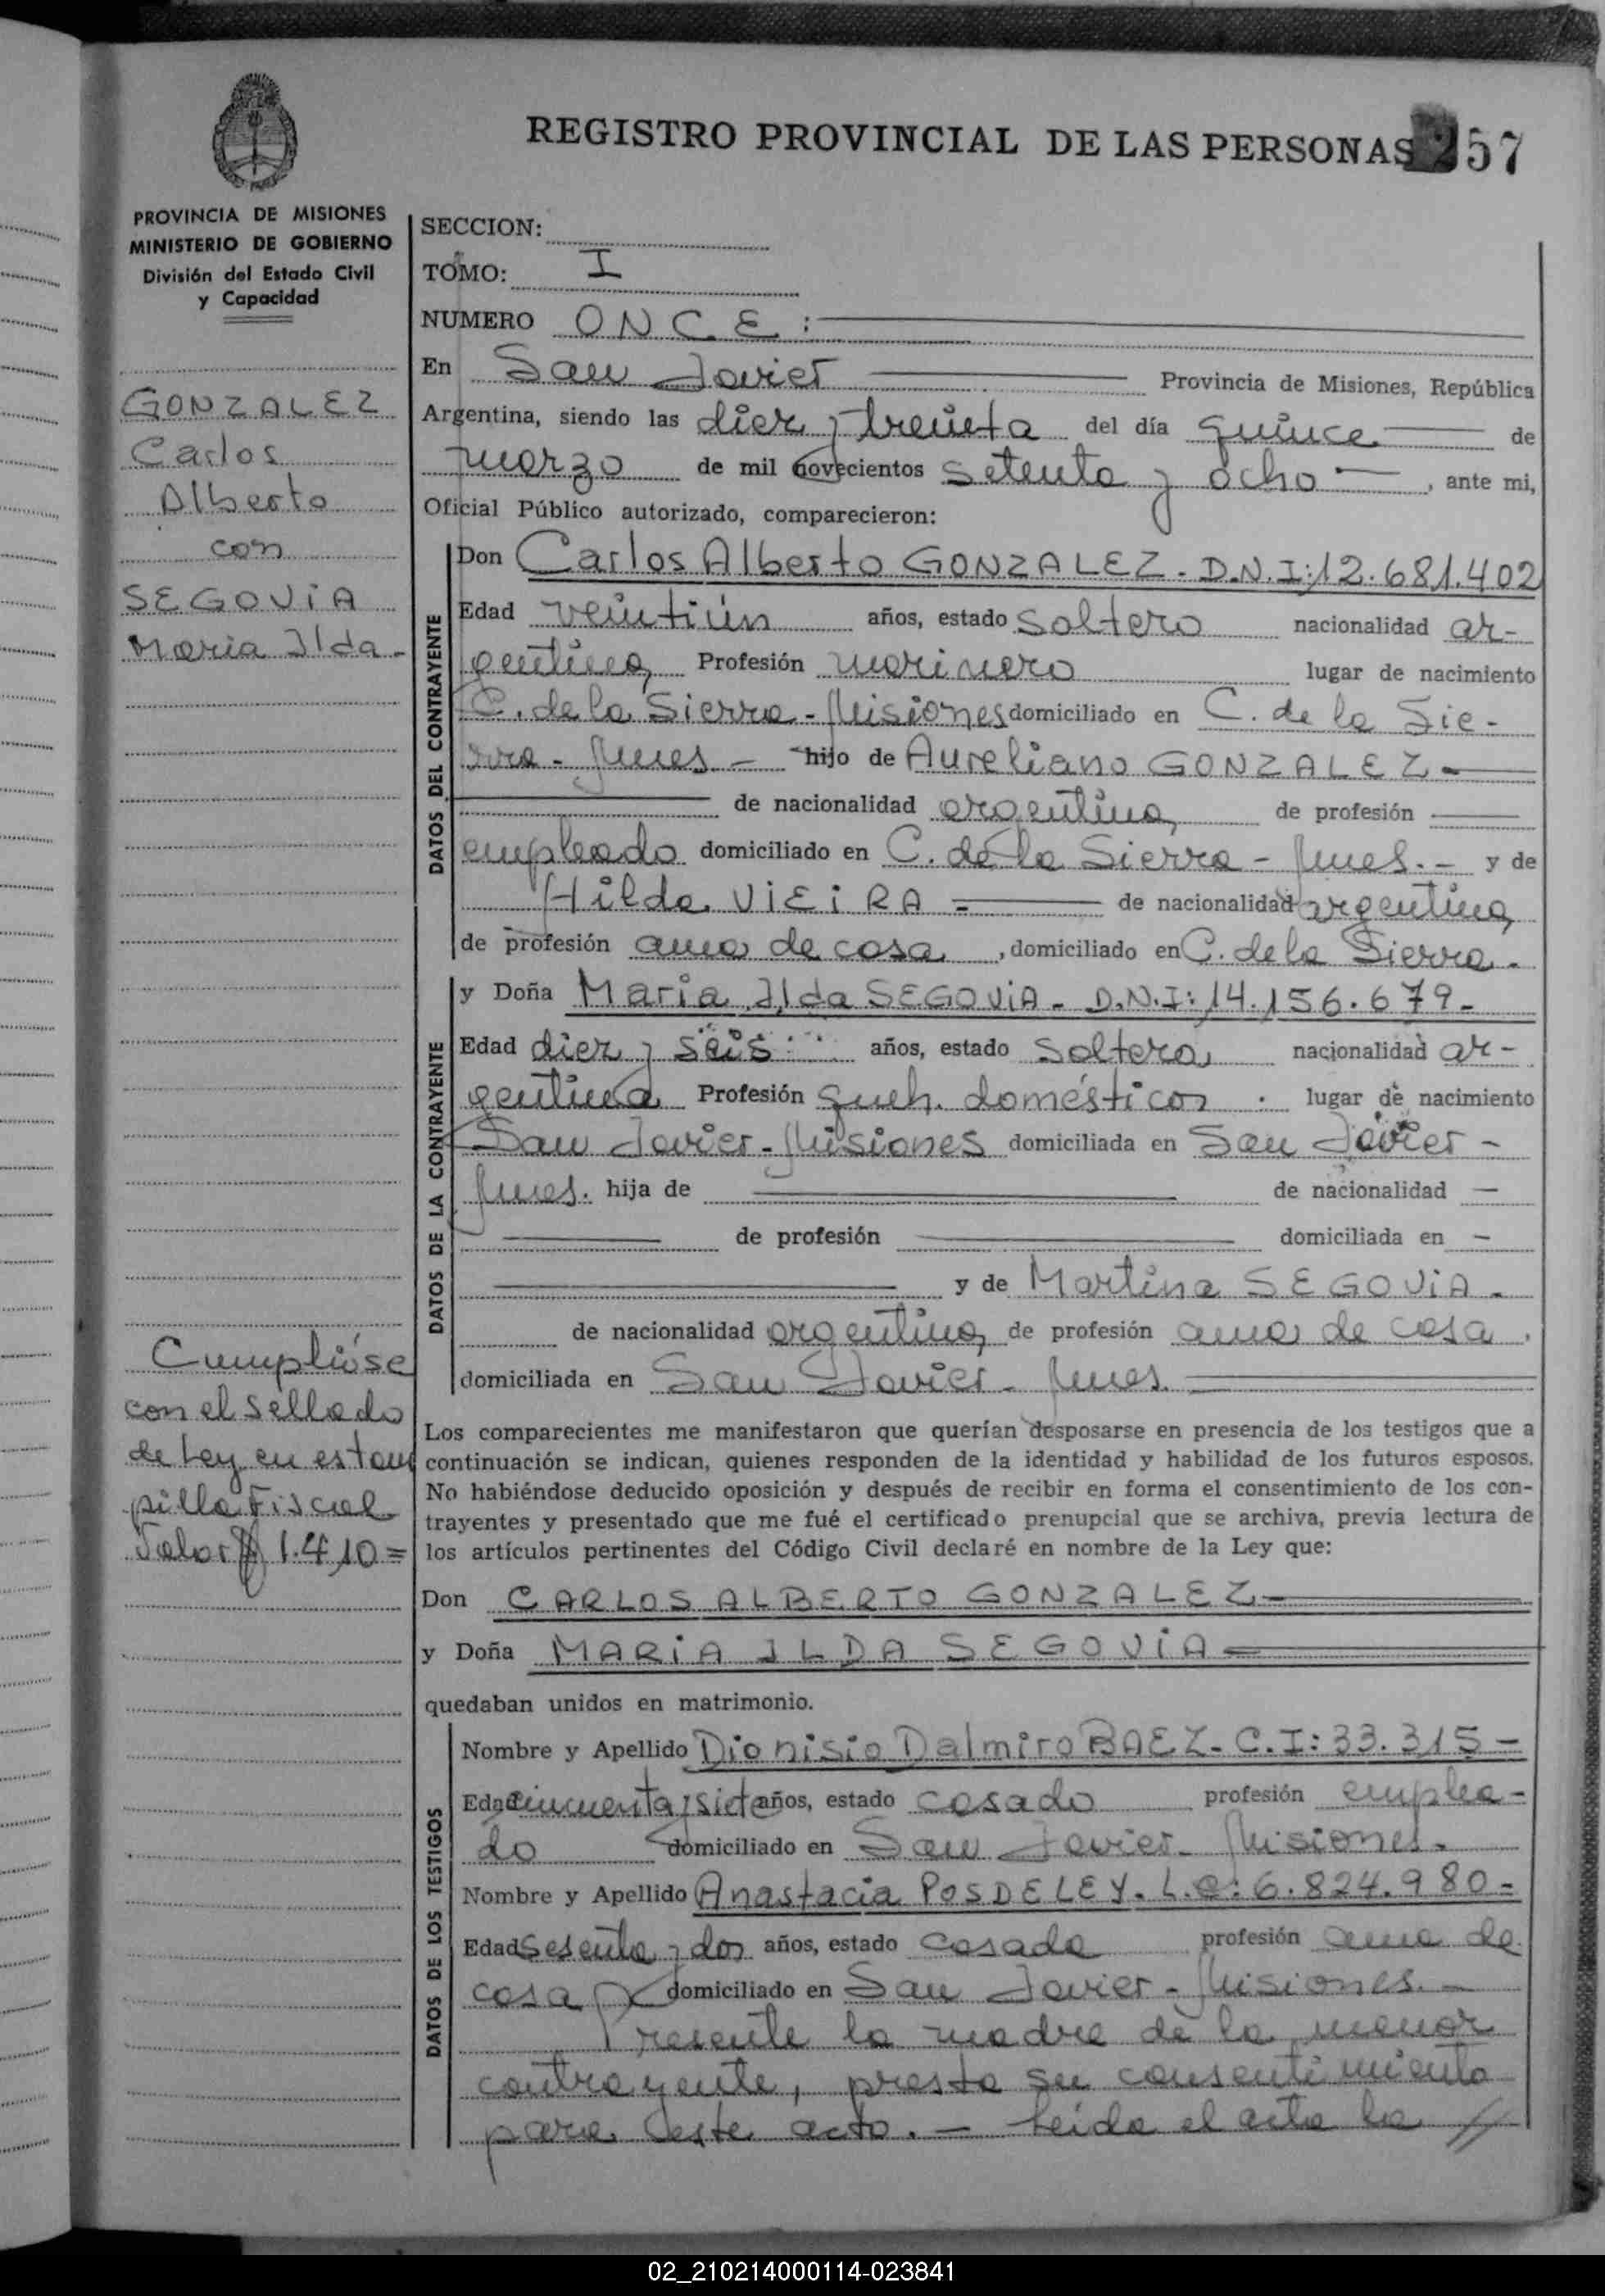 REGISTRO PROVINCIAL DE LAS PERSONAS 257
PROVINCIA DE MISIONES
MINISTERIO DE GOBIERNO
División del Estado Civil
y Capacidad
GONZALEZ
Carlos
Alberto
con
SEGOVIA
Maria Ilda-
Cumplióse
con el sellado
de Ley en estam
pilla Fiscal
Valor $ 1.410=
SECCION:
TOMO: I
NUMERO ONCE:
En San Javier Provincia de Misiones, República
Argentina, siendo las diez y treinta del día quince de
marzo de mil novecientos setenta y ocho — , ante mi,
Oficial Público autorizado, comparecieron:
DATOS DEL CONTRAYENTE
Don Carlos Alberto GONZALEZ - D.N.I: 12.681.402
Edad veintiún años, estado soltero nacionalidad ar-
gentina, Profesión marinero lugar de nacimiento
C. de la Sierra - Misiones domiciliado en C. de la Sie-
rra - Mnes - hijo de Aureliano GONZALEZ -
de nacionalidad argentina, de profesión
empleado domiciliado en C. de la Sierra - Mnes. - y de
Hilda VIEIRA - de nacionalidad argentina,
de profesión ama de casa , domiciliado en C. de la Sierra -
DATOS DE LA CONTRAYENTE
y Doña Maria Ilda SEGOVIA - D.N.I: 14.156.679-
Edad diez y seis años, estado soltera, nacionalidad ar-
gentina Profesión queh. domésticos lugar de nacimiento
San Javier - Misiones domiciliada en San Javier -
Mnes. hija de — de nacionalidad —
— de profesión — domiciliada en —
y de Martina SEGOVIA -
de nacionalidad argentina, de profesión ama de casa,
domiciliada en San Javier - Mnes.
Los comparecientes me manifestaron que querían desposarse en presencia de los testigos que a
continuación se indican, quienes responden de la identidad y habilidad de los futuros esposos.
No habiéndose deducido oposición y después de recibir en forma el consentimiento de los con-
trayentes y presentado que me fué el certificado prenupcial que se archiva, previa lectura de
los artículos pertinentes del Código Civil declaré en nombre de la Ley que:
Don CARLOS ALBERTO GONZALEZ
y Doña MARIA ILDA SEGOVIA
quedaban unidos en matrimonio.
DATOS DE LOS TESTIGOS
Nombre y Apellido Dionisio Dalmiro BAEZ - C.I: 33.315 -
Edad cincuenta y siete años, estado casado profesión emplea-
do domiciliado en San Javier - Misiones -
Nombre y Apellido Anastacia POSDELEY. L.C: 6.824.980 -
Edad sesenta y dos años, estado casada profesión ama de
casa domiciliado en San Javier - Misiones. -
Presente la madre de la menor
contrayente, presta su consentimiento
para este acto. - Leída el acta la //
02_210214000114-023841